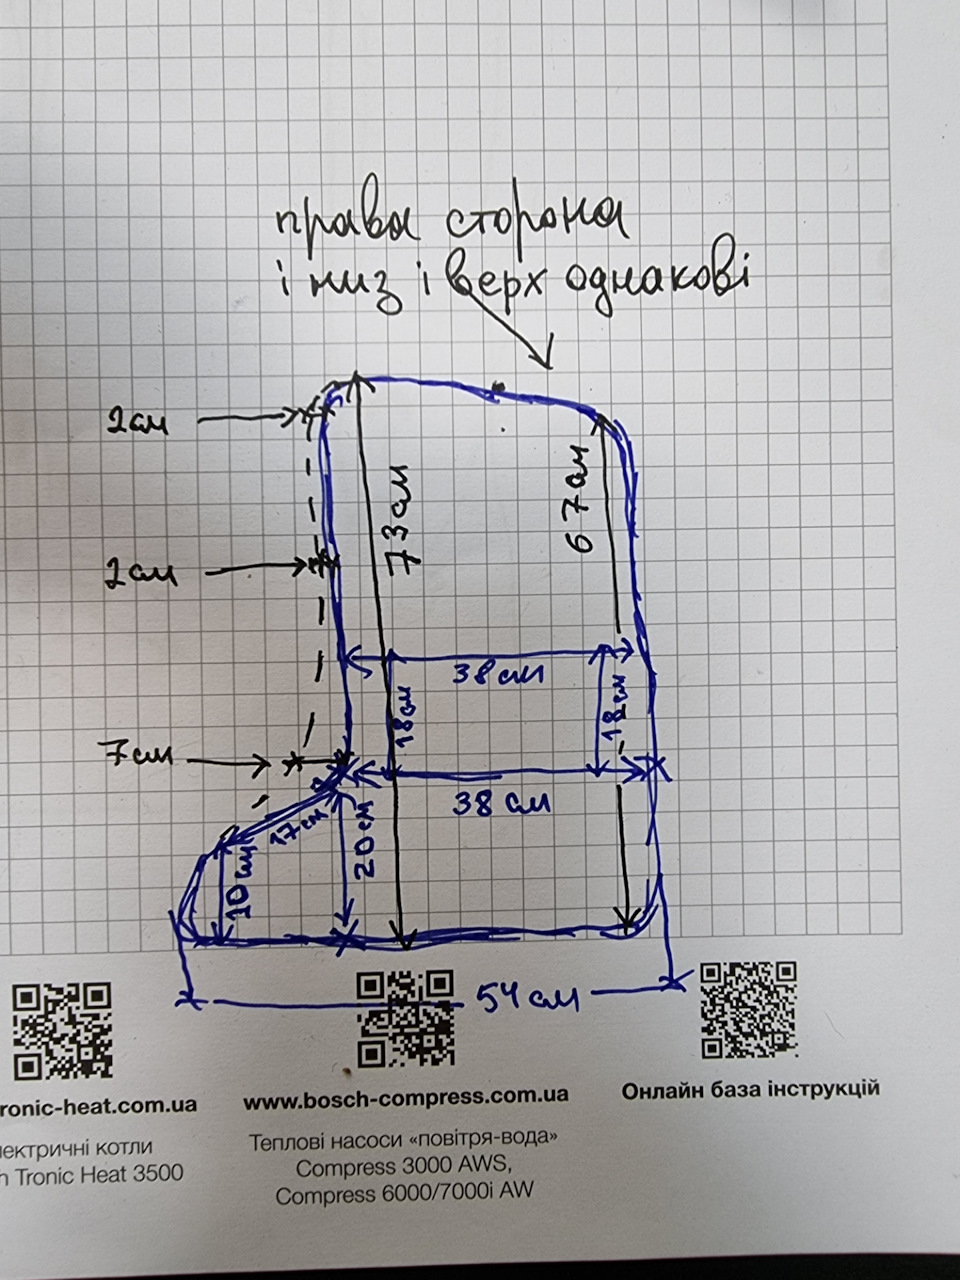 права сторона
і низ і верх однакові
2см
73см
67см
2см
38см
18см
18см
7см
38см
17см
20см
10см
54см
ronic-heat.com.ua
www.bosch-compress.com.ua
Онлайн база інструкцій
лектричні котли
h Tronic Heat 3500
Теплові насоси «повітря-вода»
Compress 3000 AWS,
Compress 6000/7000i AW